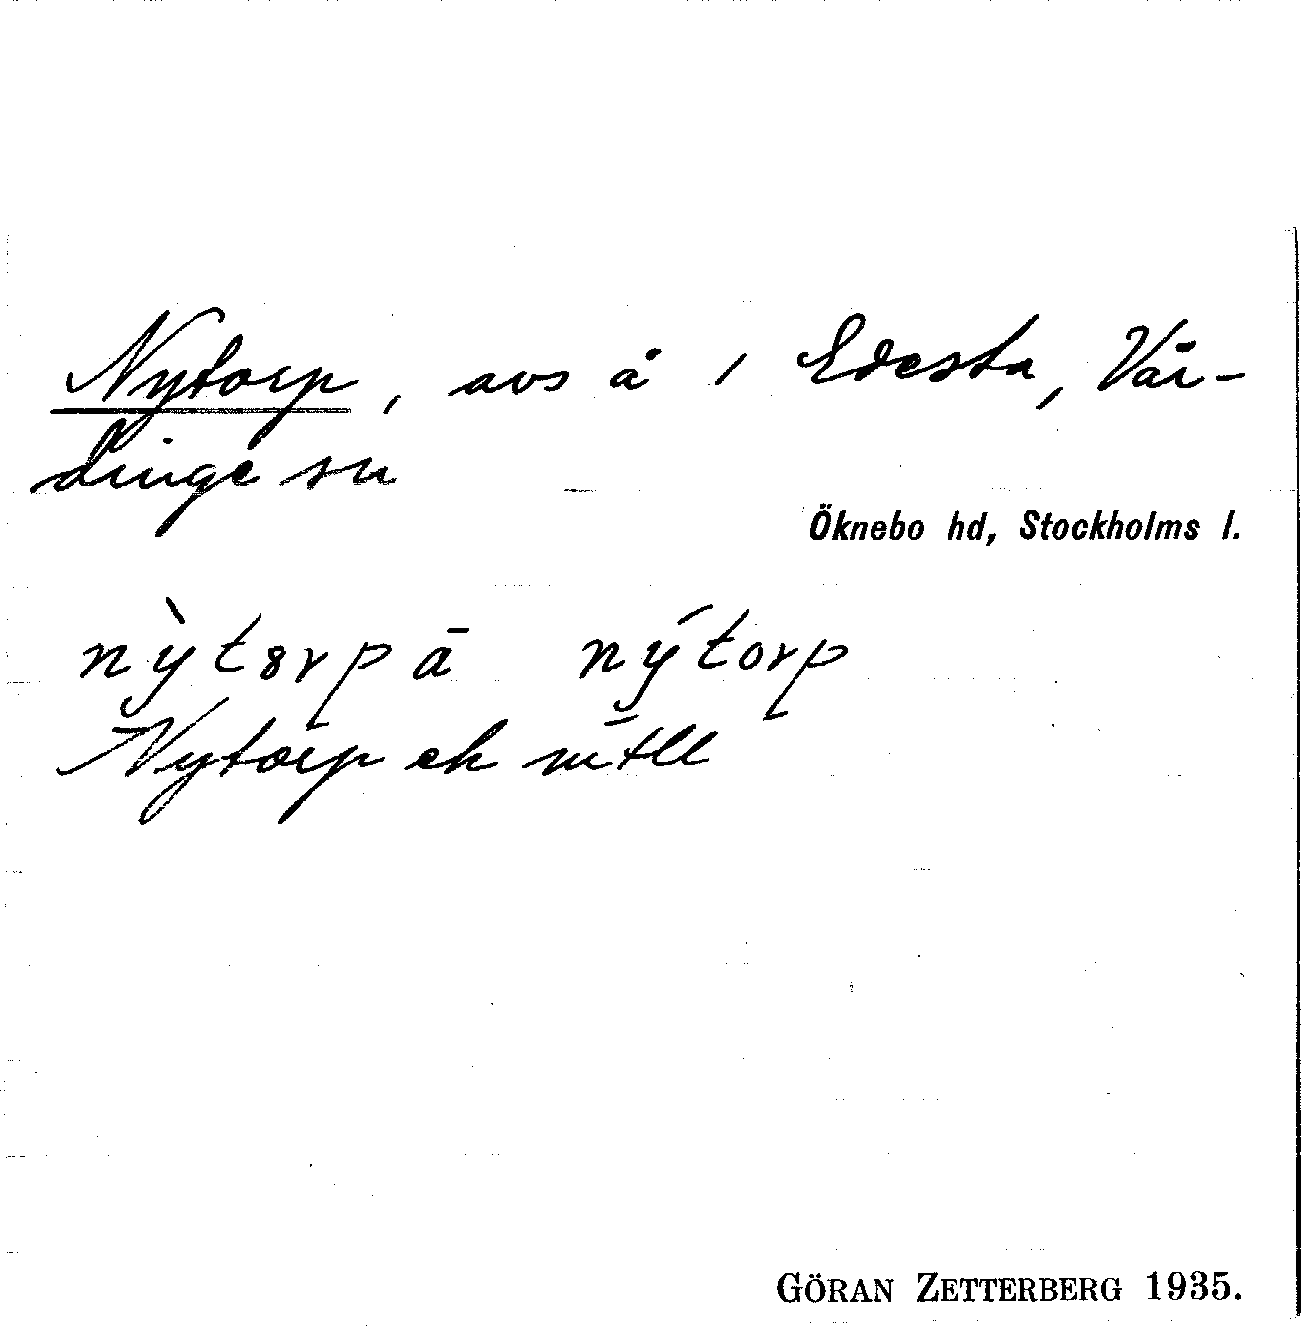 Nytorp, avs å 1 Edesta, Vår-
dinge sn
Öknebo hd, Stockholms l.
nỳtorp ā nýtorp
Nytorp ek mtll
GÖRAN ZETTERBERG 1935.